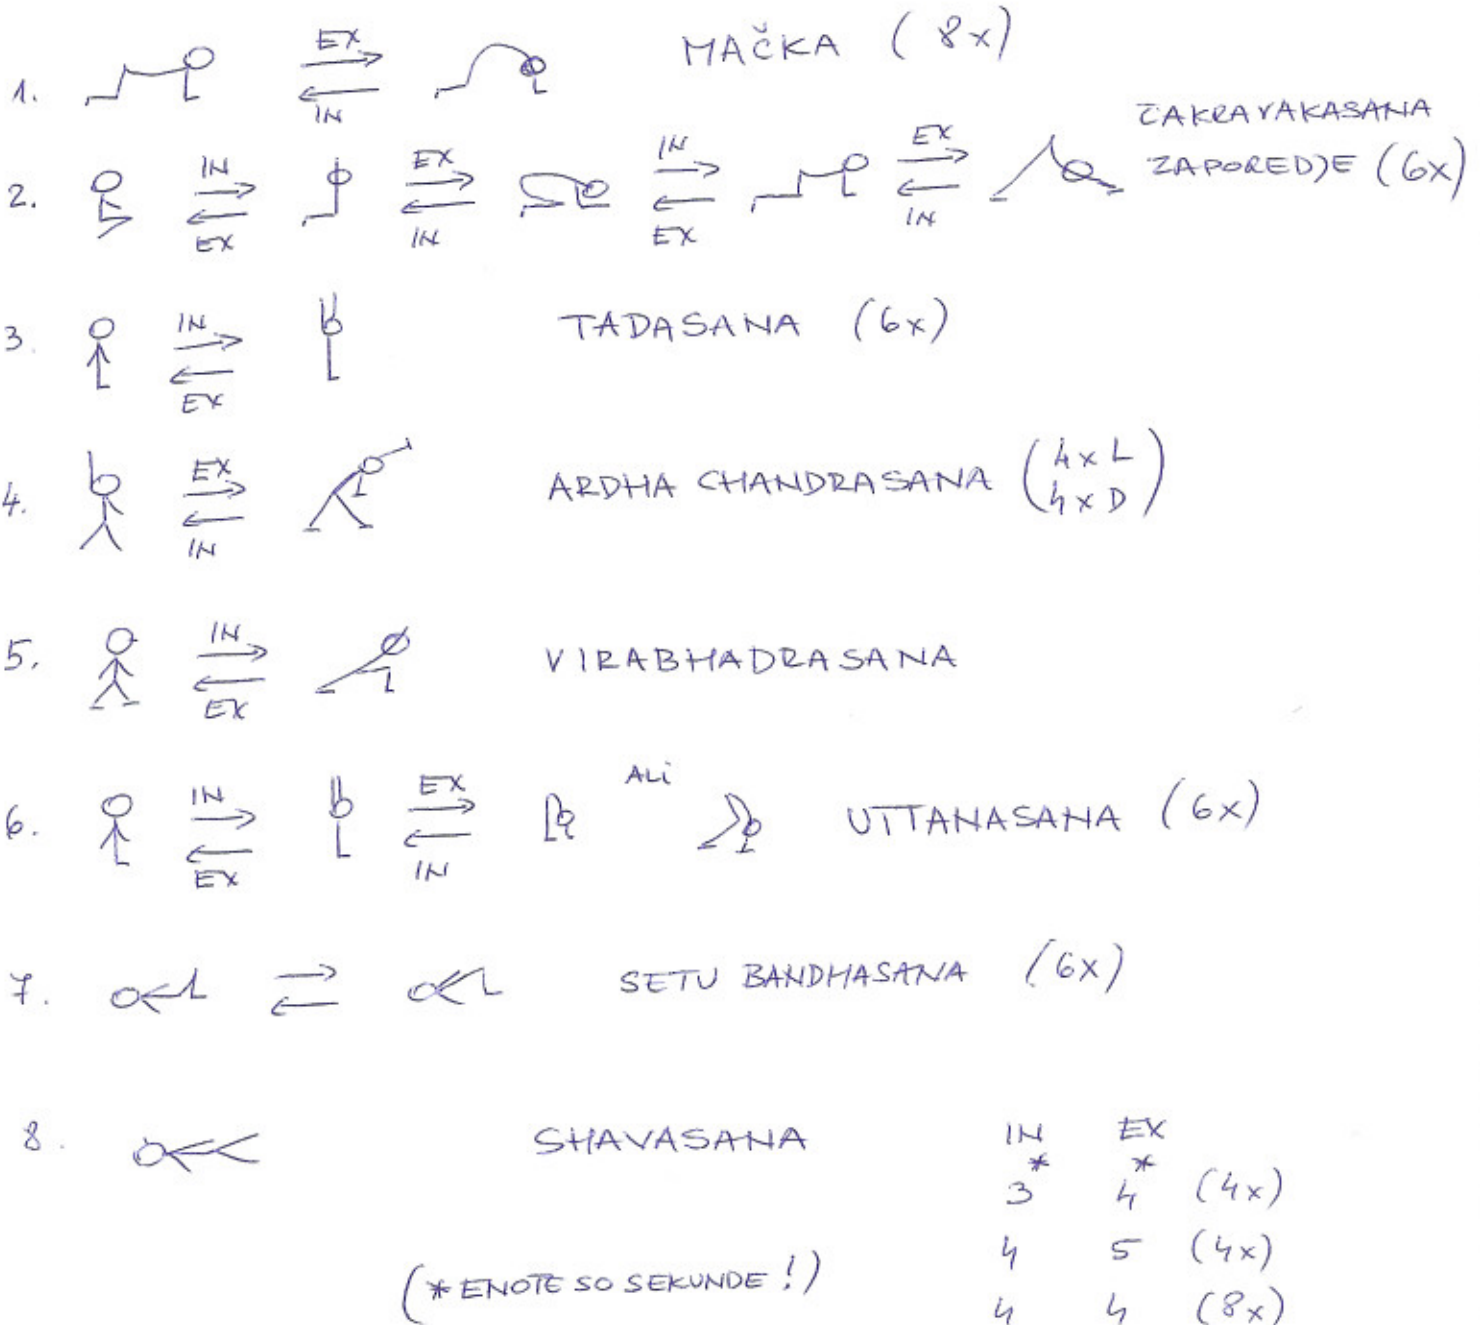 1. EX IN MAČKA (8x)
2. IN EX EX IN IN EX EX IN ČAKRAVAKASANA
ZAPOREDJE (6x)
3. IN EX TADASANA (6x)
4. EX IN ARDHA CHANDRASANA (4x L
4x D)
5. IN EX VIRABHADRASANA
6. IN EX EX IN ALI UTTANASANA (6x)
7. SETU BANDHASANA (6x)
8. SHAVASANA
IN EX
* *
3 4 (4x)
4 5 (4x)
4 4 (8x)
(* ENOTE SO SEKUNDE!)